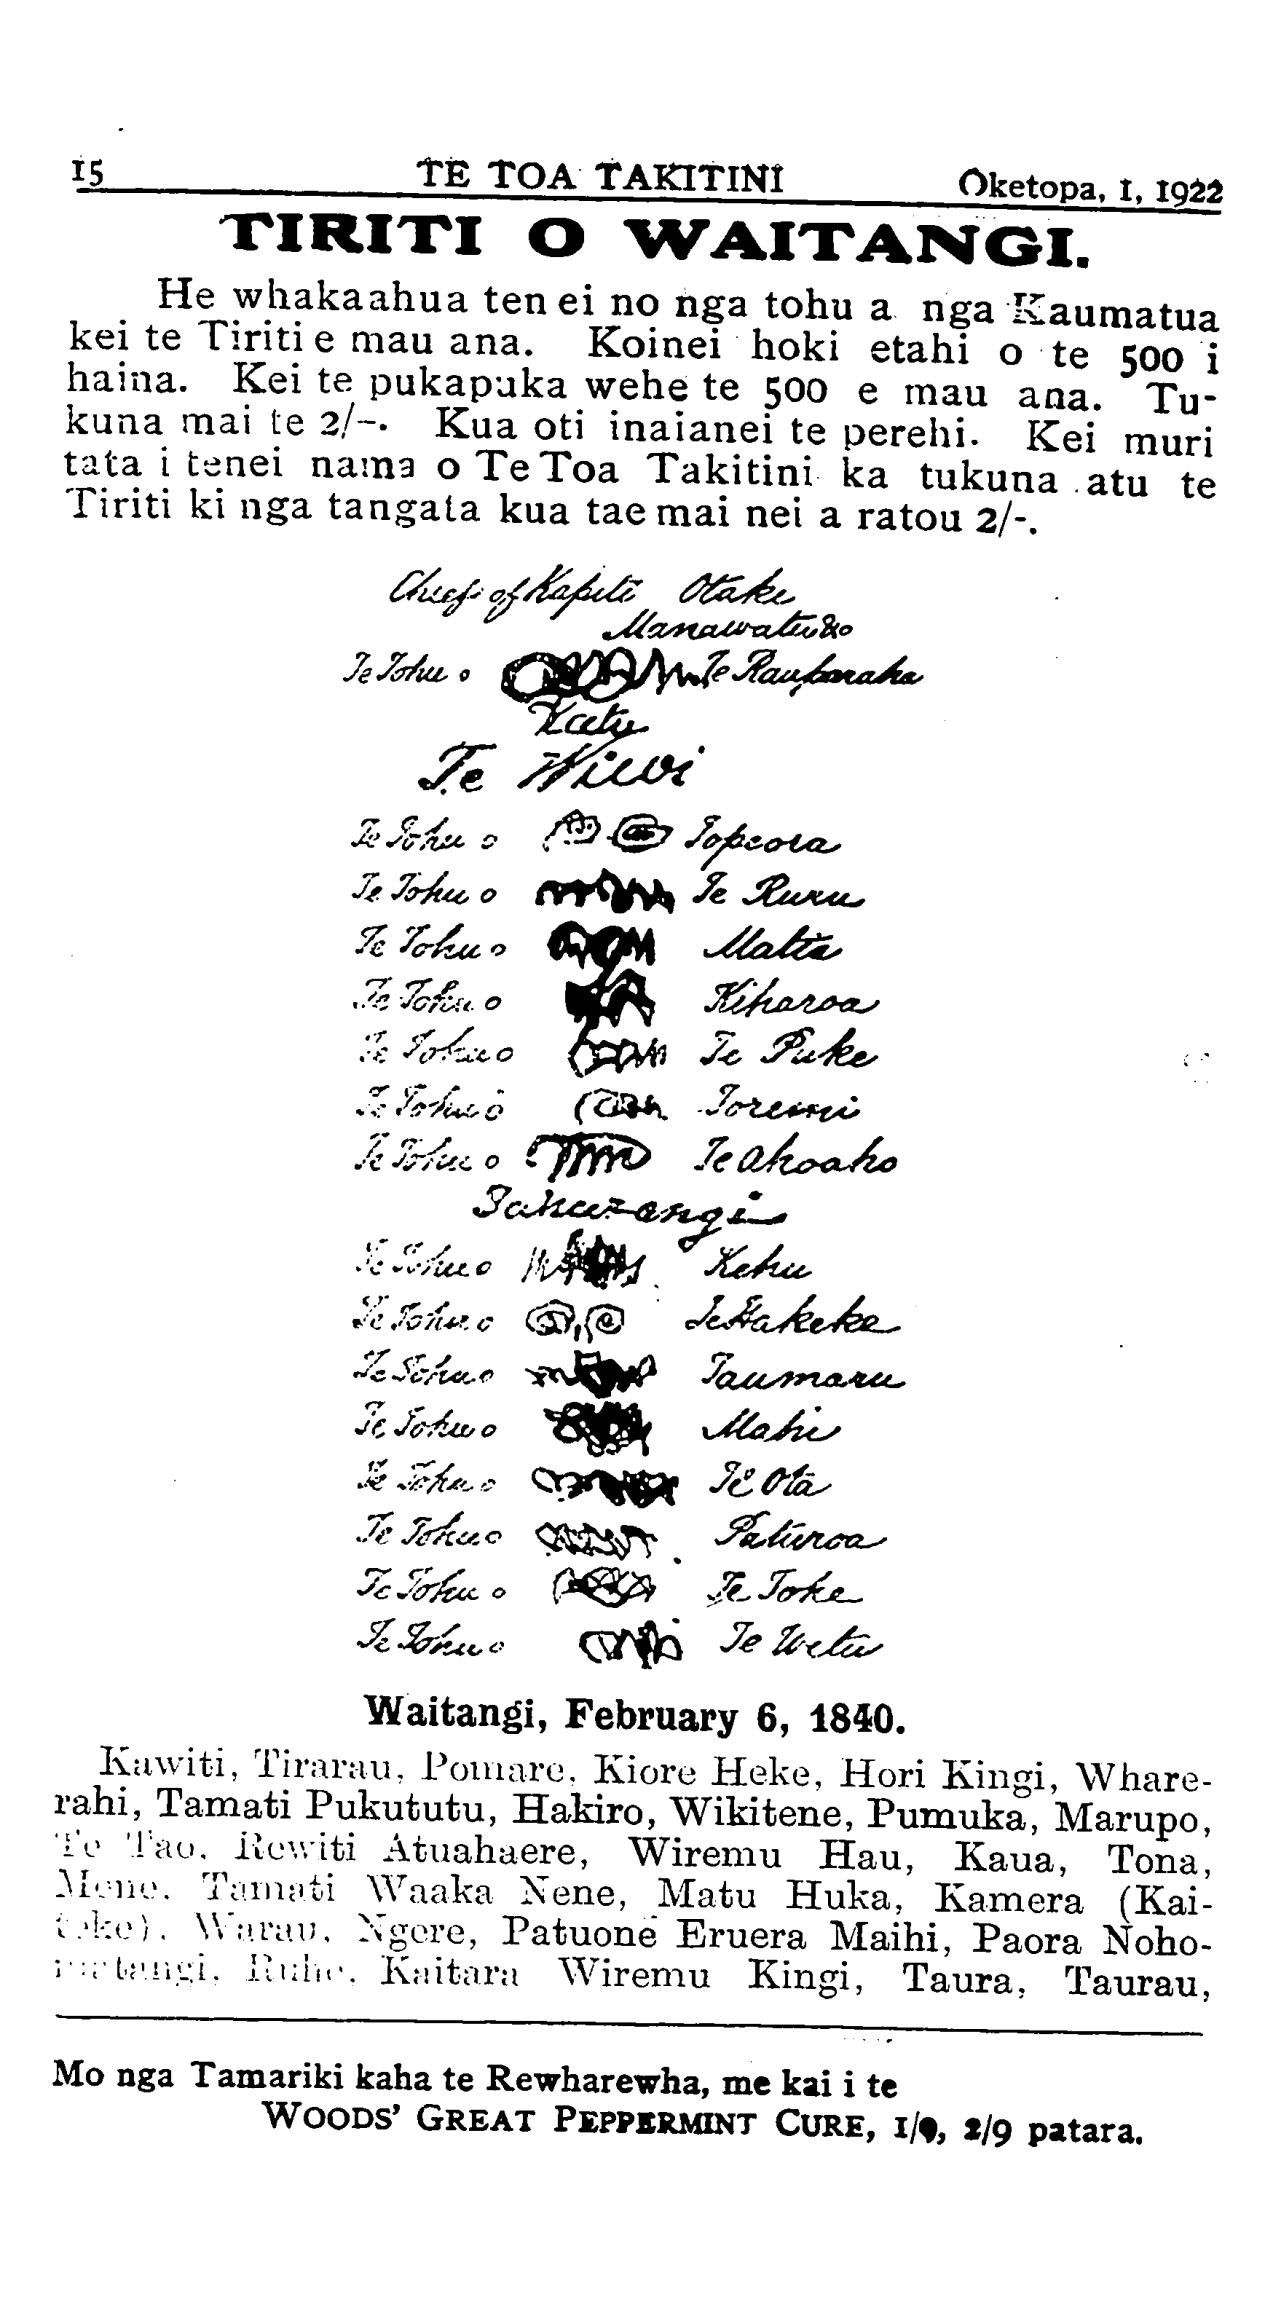 15 TE TOA TAKITINI Oketopa, 1, 1922
TIRITI O WAITANGI.
He whakaahua tenei no nga tohu a nga Kaumatua
kei te Tiriti e mau ana. Koinei hoki etahi o te 500 i
haina. Kei te pukapuka wehe te 500 e mau ana. Tu-
kuna mai te 2/-. Kua oti inaianei te perehi. Kei muri
tata i tenei nama o Te Toa Takitini ka tukuna atu te
Tiriti ki nga tangata kua tae mai nei a ratou 2/-.
Chiefs of Kapiti Otaki
Manawatu &c
Te Tohu o Te Rauparaha
Katu
Te Wiwi
Te Tohu o Topeora
Te Tohu o Te Ruru
Te Tohu o Matia
Te Tohu o Kiharoa
Te Tohu o Te Puke
Te Tohu o Toremi
Te Tohu o Te Ahoaho
Tahurangi
Te Tohu o Kehu
Te Tohu o Te Hakeke
Te Tohu o Taumaru
Te Tohu o Mahi
Te Tohu o Te Ota
Te Tohu o Paturoa
Te Tohu o Te Toke
Te Tohu o Te Wetu
Waitangi, February 6, 1840.
Kawiti, Tirarau, Pomare, Kiore Heke, Hori Kingi, Whare-
rahi, Tamati Pukututu, Hakiro, Wikitene, Pumuka, Marupo,
Te Tao, Rewiti Atuahaere, Wiremu Hau, Kaua, Tona,
Mene, Tamati Waaka Nene, Matu Huka, Kamera (Kai-
teke), Warau, Ngere, Patuone Eruera Maihi, Paora Noho-
matangi, Ruhe, Kaitara Wiremu Kingi, Taura, Taurau,
Mo nga Tamariki kaha te Rewharewha, me kai i te
WOODS' GREAT PEPPERMINT CURE, 1/9, 2/9 patara.